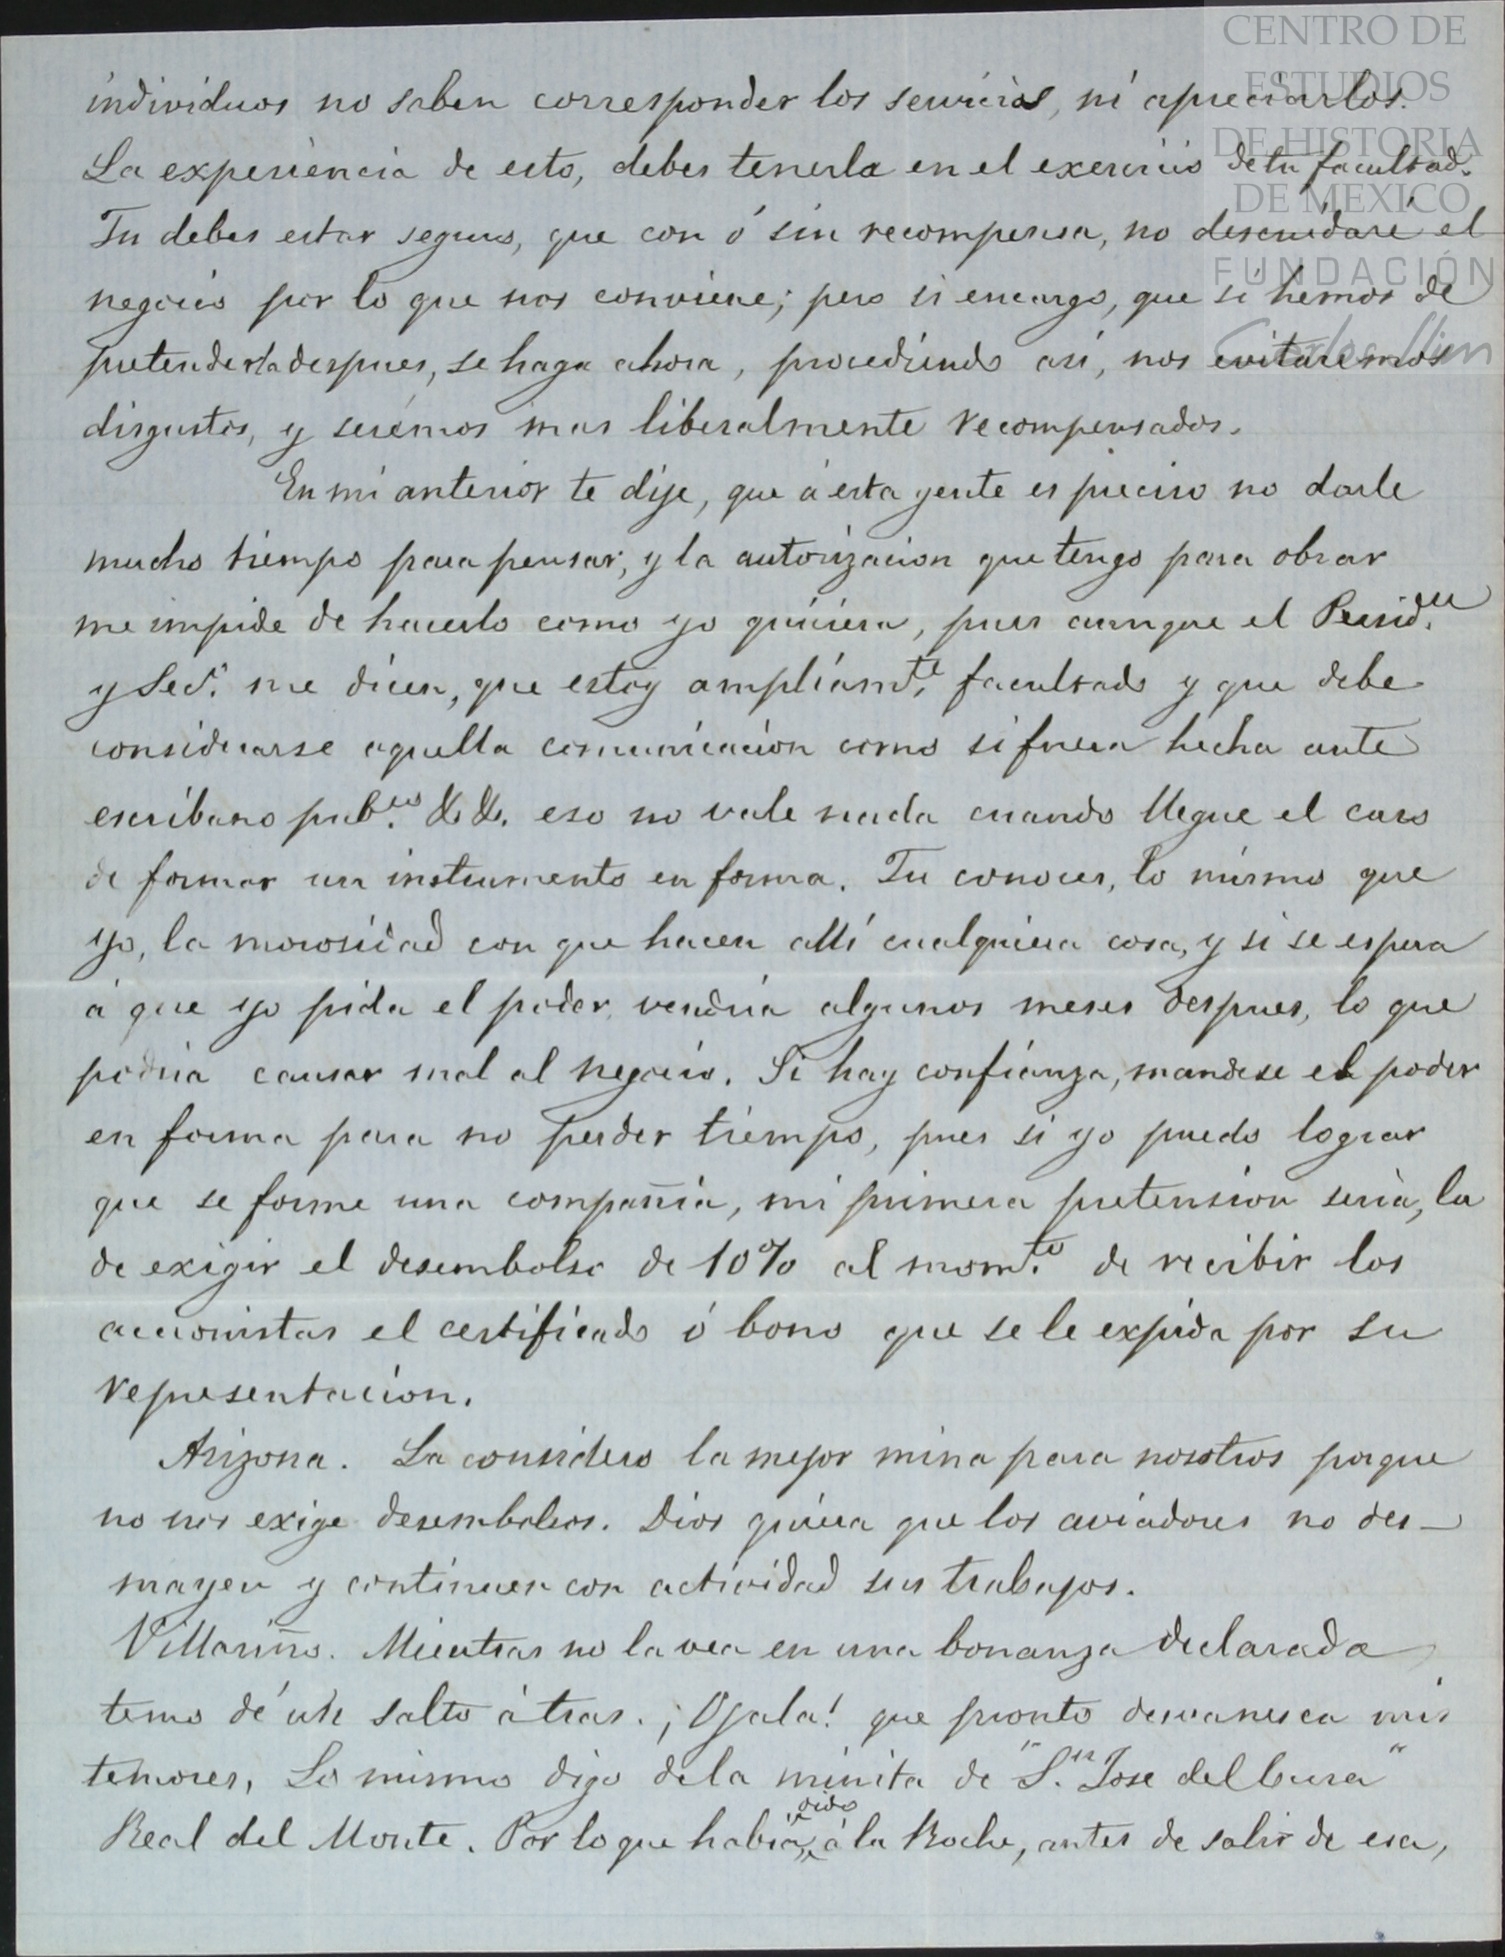 CENTRO DE
ESTUDIOS
DE HISTORIA
DE MEXICO
FUNDACIÓN
Carlos Slim
individuos no saben corresponder los servicios, ni apreciarlos.
La experiencia de esto, debes tenerla en el exercicio de tu facultad.
Tu debes estar seguro, que con ó sin recompensa, no descuidaré el
negocio por lo que nos conviene; pero si encargo, que si hemos de
pretenderla despues, se haga ahora, procediendo asi, nos evitaremos
disgustos, y serémos mas liberalmente recompensados.
En mi anterior te dije, que á esta gente es preciso no darle
mucho tiempo para pensar, y la autorizacion que tengo para obrar
me impide de hacerlo como yo quisiera, pues aunque el Presid.te
y Sec.º me dicen, que estoy ampliam.te facultado y que debe
considerarse aquella comunicacion como si fuera hecha ante
escribano pub.co &. &. eso no vale nada cuando llegue el caso
de formar un instrumento en forma. Tu conoces, lo mismo que
yo, la morosidad con que hacen allí cualquiera cosa, y si se espera
á que yo pida el poder, vendria algunos meses despues, lo que
podria causar mal al negocio. Si hay confianza, mandese el poder
en forma para no perder tiempo, pues si yo puedo lograr
que se forme una compañia, mi primera pretension seria, la
de exigir el desembolso de 10% al mom.to de recibir los
accionistas el certificado ó bono que se le expida por su
representacion.
Arizona. La considero la mejor mina para nosotros porque
no nos exige desembolsos. Dios quiera que los aviadores no des-
mayen y continuen con actividad sus trabajos.
Villariño. Mientras no la vea en una bonanza declarada
temo dé un salto átras. ¡Ojala! que pronto desvanesca mis
temores, Lo mismo digo de la minita de "S.n Jose del Cura"
Real del Monte. Por lo que habia oido á la Roche, antes de salir de esa,